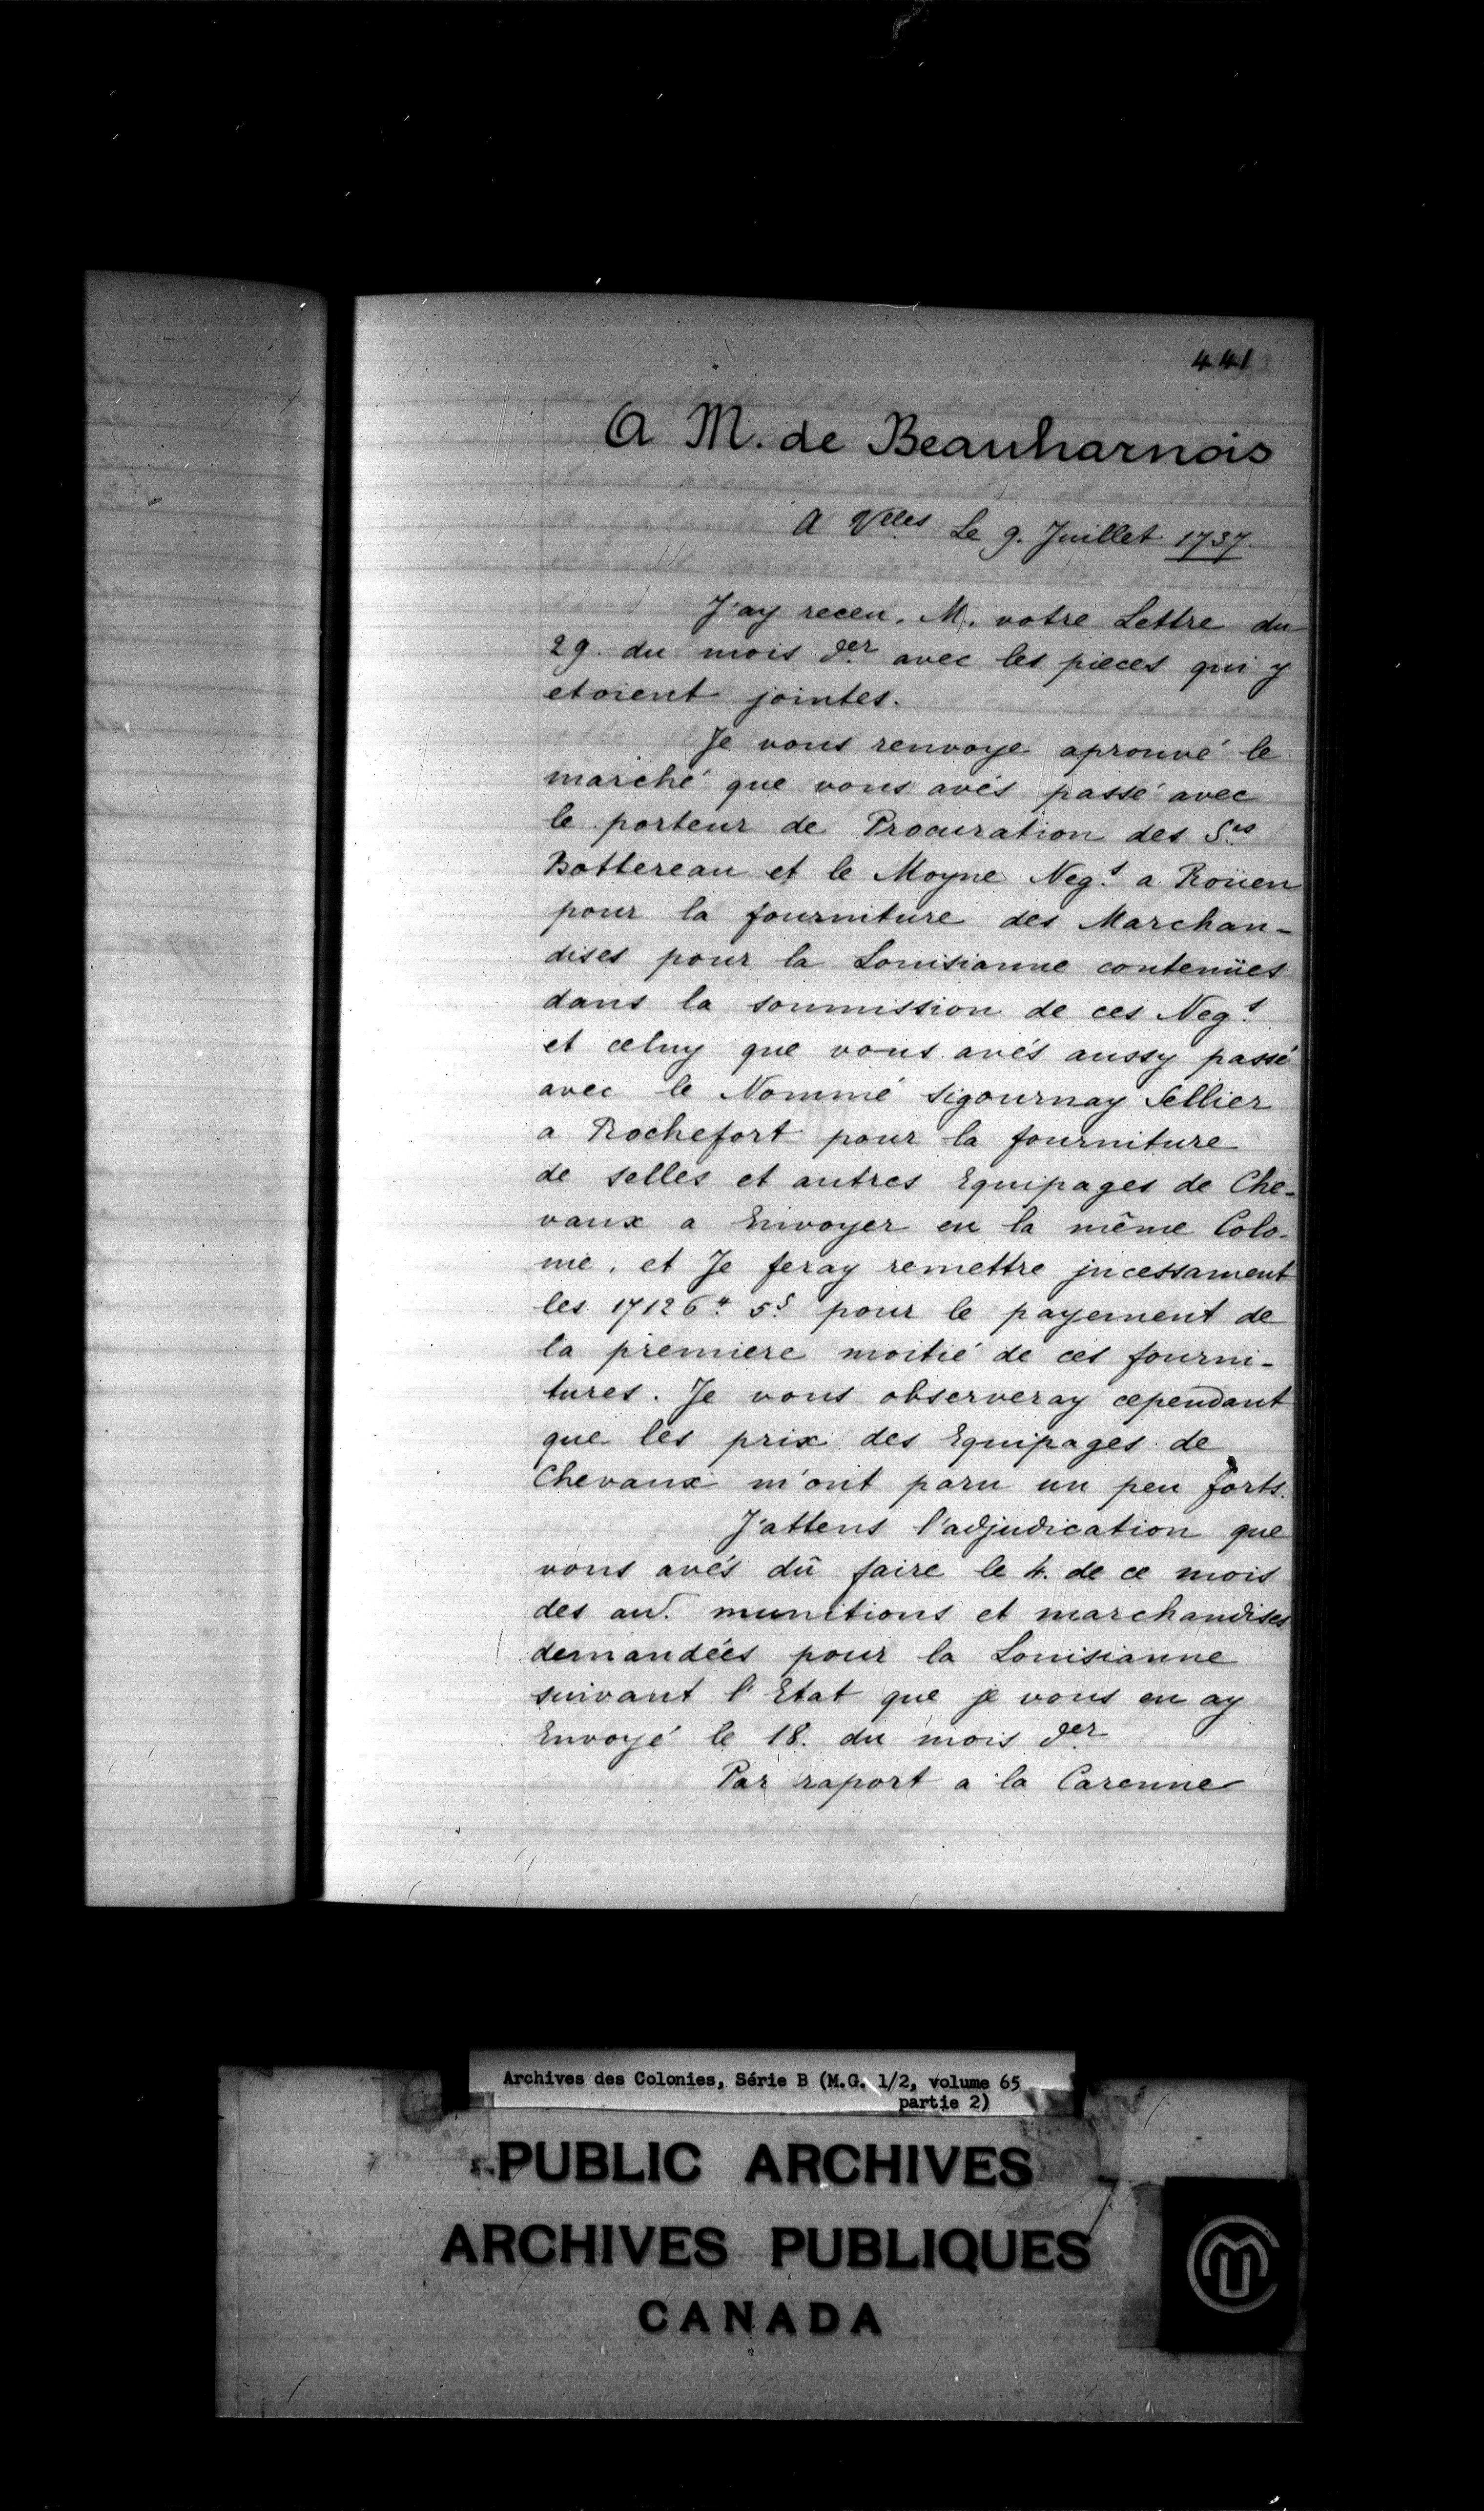 441
A M. de Beauharnois
A Vlles Le 9. Juillet 1737.
J'ay receu, M. votre Lettre du
29. du mois der avec les pieces qui y
etoient jointes.
Je vous renvoye aprouvé le
marché que vous avés passé avec
le porteur de Procuration des Srs
Bottereau et le Moyne Negs a Roüen
pour la fourniture des Marchan-
dises pour la Louisianne contenües
dans la soumission de ces Negs
et celuy que vous avés aussy passé
avec le Nommé Sigournay Sellier
a Rochefort pour la fourniture
de selles et autres Equipages de Che-
vaux a Envoyer en la même Colo-
nie, et Je feray remettre jncessament
les 17126# 5s pour le payement de
la premiere moitié de ces fourni-
tures. Je vous observeray cependant
que les prix des Equipages de
Chevaux m'ont paru un peu forts.
J'attens l'adjudication que
vous avés dû faire le 4. de ce mois
des au. munitions et marchandises
demandées pour la Louisianne
suivant l'Etat que je vous en ay
Envoyé le 18. du mois der
Par raport a la Carenne
Archives des Colonies, Série B (M.G. 1/2, volume 65
partie 2)
PUBLIC ARCHIVES
ARCHIVES PUBLIQUES
CANADA